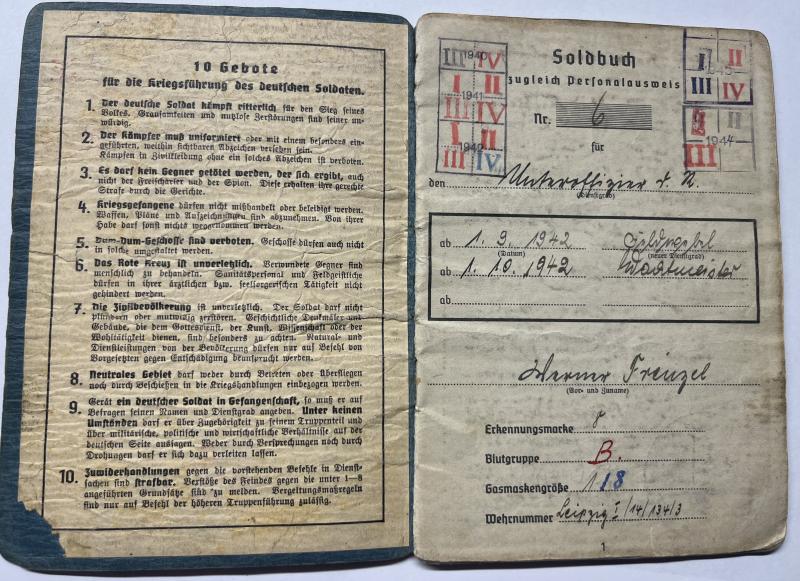 10 Gebote
für die Kriegsführung des deutschen Soldaten.
1. Der deutsche Soldat kämpft ritterlich für den Sieg seines
Volkes. Grausamkeiten und nutzlose Zerstörungen sind seiner un-
würdig.
2. Der Kämpfer muß uniformiert oder mit einem besonders ein-
geführten, weithin sichtbaren Abzeichen versehen sein.
Kämpfen in Zivilkleidung ohne ein solches Abzeichen ist verboten.
3. Es darf kein Gegner getötet werden, der sich ergibt, auch
nicht der Freischärler und der Spion. Diese erhalten ihre gerechte
Strafe durch die Gerichte.
4. Kriegsgefangene dürfen nicht mißhandelt oder beleidigt werden.
Waffen, Pläne und Aufzeichnungen sind abzunehmen. Von ihrer
Habe darf sonst nichts weggenommen werden.
5. Dum-Dum-Geschosse sind verboten. Geschosse dürfen auch nicht
in solche umgestaltet werden.
6. Das Rote Kreuz ist unverletzlich. Verwundete Gegner sind
menschlich zu behandeln. Sanitätspersonal und Feldgeistliche
dürfen in ihrer ärztlichen bzw. seelsorgerischen Tätigkeit nicht
gehindert werden.
7. Die Zivilbevölkerung ist unverletzlich. Der Soldat darf nicht
plündern oder mutwillig zerstören. Geschichtliche Denkmäler und
Gebäude, die dem Gottesdienst, der Kunst, Wissenschaft oder der
Wohltätigkeit dienen, sind besonders zu achten. Natural- und
Dienstleistungen von der Bevölkerung dürfen nur auf Befehl von
Vorgesetzten gegen Entschädigung beansprucht werden.
8. Neutrales Gebiet darf weder durch Betreten oder Überfliegen
noch durch Beschießen in die Kriegshandlungen einbezogen werden.
9. Gerät ein deutscher Soldat in Gefangenschaft, so muß er auf
Befragen seinen Namen und Dienstgrad angeben. Unter keinen
Umständen darf er über Zugehörigkeit zu seinem Truppenteil und
über militärische, politische und wirtschaftliche Verhältnisse auf der
deutschen Seite aussagen. Weder durch Versprechungen noch durch
Drohungen darf er sich dazu verleiten lassen.
10. Zuwiderhandlungen gegen die vorstehenden Befehle in Dienst-
sachen sind strafbar. Verstöße des Feindes gegen die unter 1–8
angeführten Grundsätze sind zu melden. Vergeltungsmaßregeln
sind nur auf Befehl der höheren Truppenführung zulässig.
III 1940 IV
I II
1941
III IV
I II
1942
III IV
Soldbuch
zugleich Personalausweis
Nr. 6
für
I II
III IV
II
1944
III
den Unteroffizier d. R.
(Dienstgrad)
ab 1. 9. 1942 Feldwebel
(Datum) (neuer Dienstgrad)
ab 1. 10. 1942 Wachtmeister
ab
Werner Frenzel
(Vor- und Zuname)
Erkennungsmarke
Blutgruppe B.
Gasmaskengröße 1
Wehrnummer Leipzig I/14/134/3
1